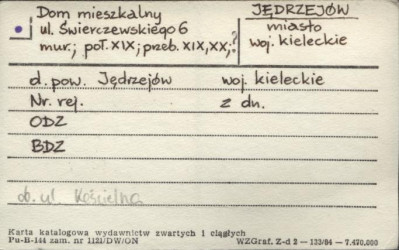 Dom mieszkalny
ul. Świerczewskiego 6
mur.; poł. XIX; przeb. XIX, XX,?
JĘDRZEJÓW
miasto
woj. kieleckie
d. pow. Jędrzejów woj. kieleckie
Nr. rej. z dn.
ODZ
BDZ
ob. ul. Kościelna
Karta katalogowa wydawnictw zwartych i ciągłych
Pu-B-144 zam. nr 1121/DW/ON WZGraf. Z-d 2 — 133/84 — 7.470.000